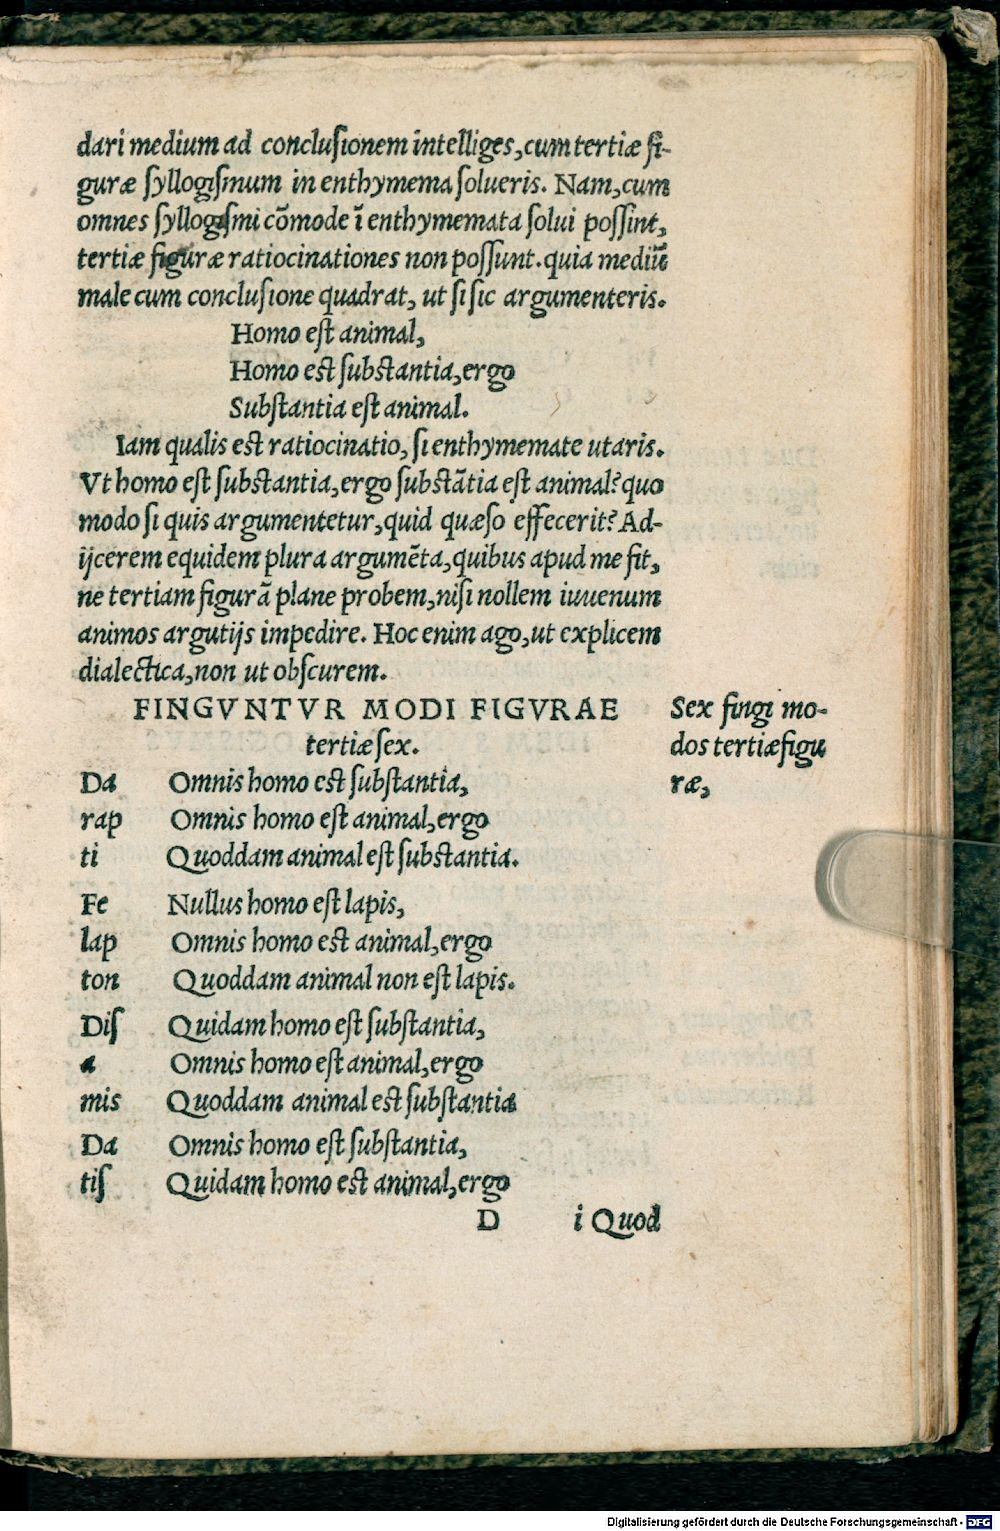 dari medium ad conclusionem intelliges, cum tertiæ fi-
guræ syllogismum in enthymema solueris. Nam, cum
omnes syllogismi cõmode ĩ enthymemata solui possint,
tertiæ figuræ ratiocinationes non possunt. quia mediũ
male cum conclusione quadrat, ut si sic argumenteris.
Homo est animal,
Homo est substantia, ergo
Substantia est animal.
Iam qualis est ratiocinatio, si enthymemate utaris.
Vt homo est substantia, ergo substãtia est animal? quo
modo si quis argumentetur, quid quæso effecerit? Ad-
ijcerem equidem plura argumẽta, quibus apud me fit,
ne tertiam figurã plane probem, nisi nollem iuuenum
animos argutijs impedire. Hoc enim ago, ut explicem
dialectica, non ut obscurem.
FINGVNTVR MODI FIGVRAE
tertiæ sex.
Sex fingi mo-
dos tertiæ figu
ræ,
Da Omnis homo est substantia,
rap Omnis homo est animal, ergo
ti Quoddam animal est substantia.
Fe Nullus homo est lapis,
lap Omnis homo est animal, ergo
ton Quoddam animal non est lapis.
Dis Quidam homo est substantia,
a Omnis homo est animal, ergo
mis Quoddam animal est substantia
Da Omnis homo est substantia,
tis Quidam homo est animal, ergo
D i Quod
Digitalisierung gefördert durch die Deutsche Forschungsgemeinschaft - DFG